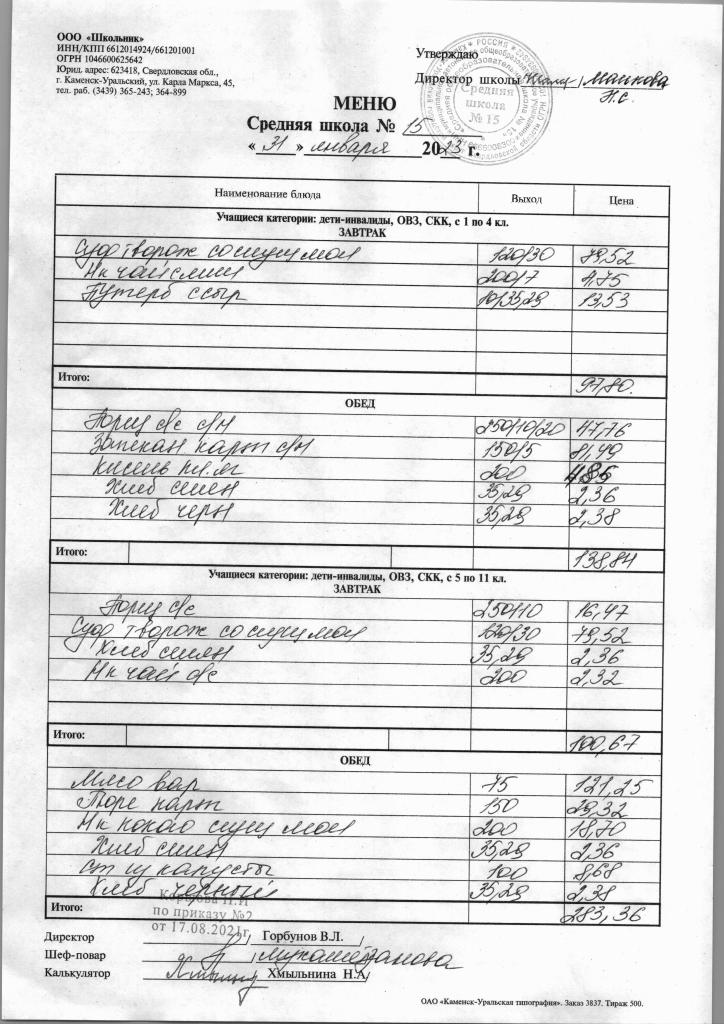 ООО «Школьник»
ИНН/КПП 6612014924/661201001
ОГРН 1046600625642
Юрид. адрес: 623418, Свердловская обл.,
г. Каменск-Уральский, ул. Карла Маркса, 45,
тел. раб. (3439) 365-243; 364-899
Утверждаю
Директор школы Маикова
Н.С.
Средняя
школа
№ 15
МЕНЮ
Средняя школа № 15
« 31 » января 2023 г.
Наименование блюда Выход Цена
Учащиеся категории: дети-инвалиды, ОВЗ, СКК, с 1 по 4 кл.
ЗАВТРАК
Суфл творож со сгущ мол 120/30 79,52
Нк чай слим 200/7 4,75
Бутерб с сыр 10/35,29 13,53
Итого: 97,80.
ОБЕД
Борщ с/с с/м 250/10/20 47,76
Запекан карт с/м 150/5 81,49
Кисель пл.яг 200 4,85
Хлеб пшен 35,29 2,36
Хлеб черн 35,29 2,38
Итого: 138,84
Учащиеся категории: дети-инвалиды, ОВЗ, СКК, с 5 по 11 кл.
ЗАВТРАК
Борщ с/с 250/10 16,47
Суфл творож со сгущ мол 120/30 79,52
Хлеб пшен 35,29 2,36
Нк чай с/с 200 2,32
Итого: 100,67
ОБЕД
Мясо вар 75 121,25
Пюре карт 150 29,32
Нк какао сгущ мол 200 18,70
Хлеб пшен 35,29 2,36
Ст щ капусты 100 8,68
Хлеб черный 35,29 2,38
по приказу №2
от 17.08.2021г.
Итого: 283,36
Директор Горбунов В.Л.
Шеф-повар
Калькулятор Хмыльнина Н.А.
ОАО «Каменск-Уральская типография». Заказ 3837. Тираж 500.